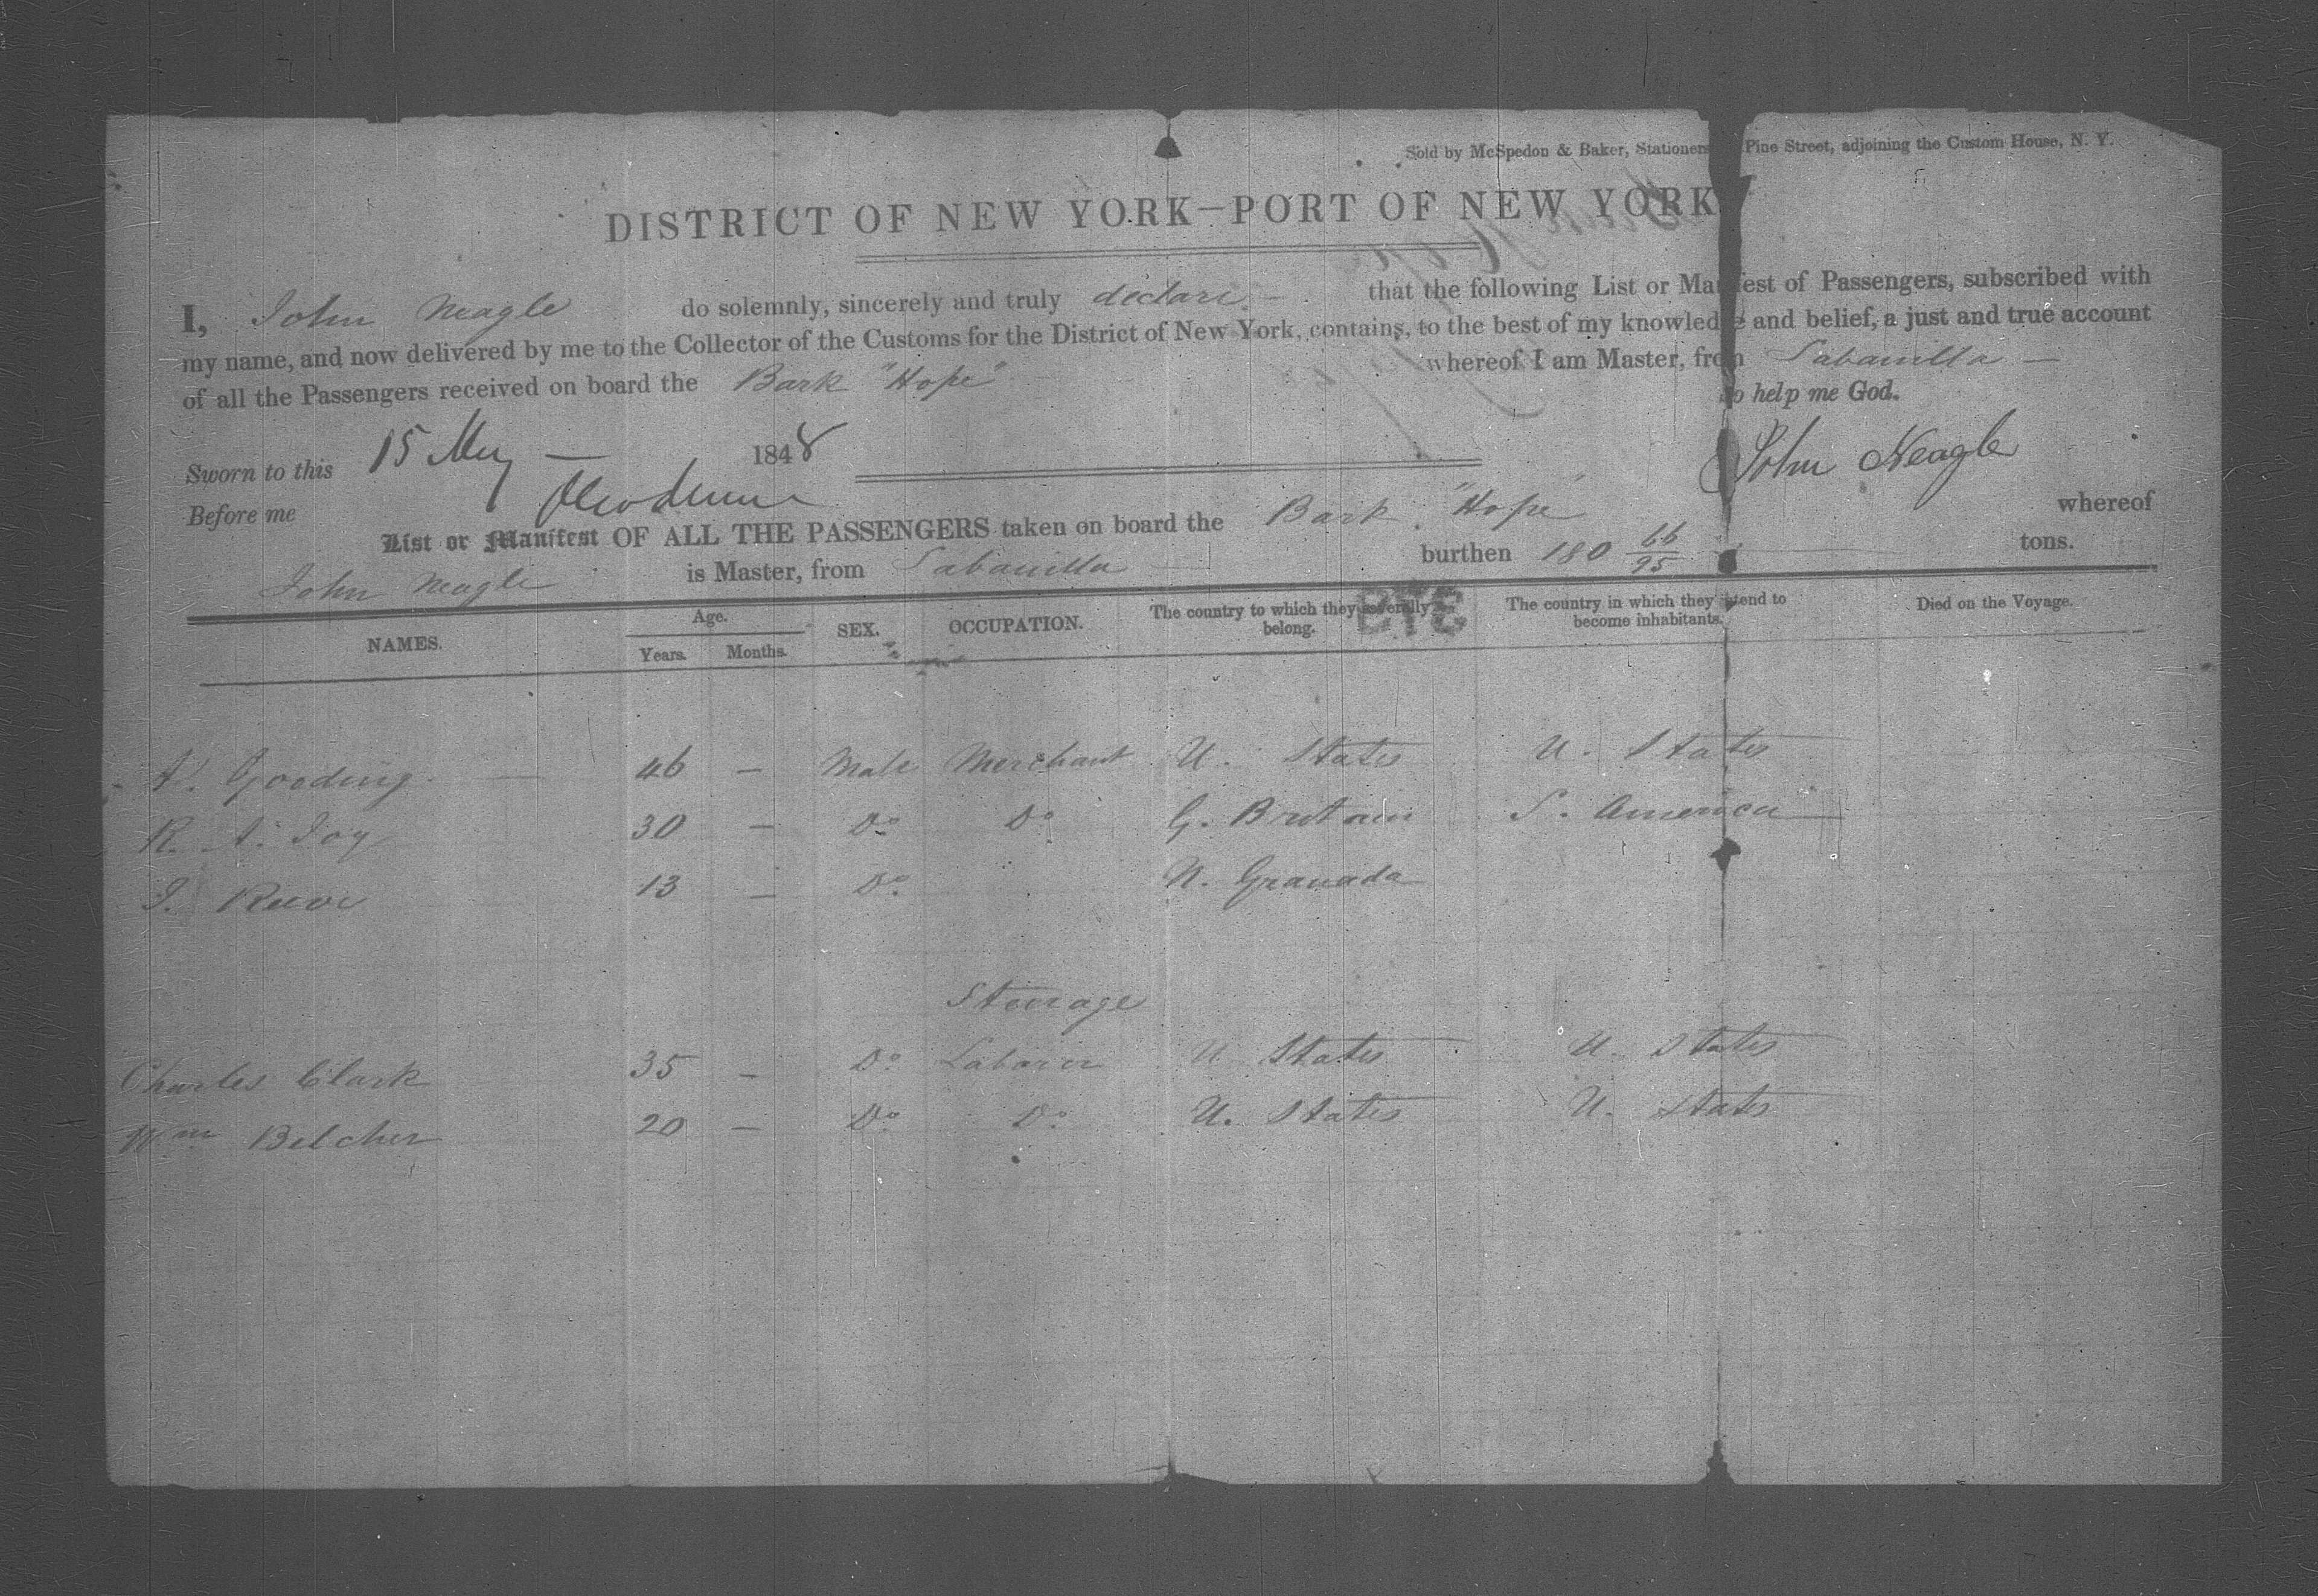 Sold by McSpedon & Baker, Stationers Pine Street, adjoining the Custom House, N. Y.
DISTRICT OF NEW YORK—PORT OF NEW YORK
I, John Neagle do solemnly, sincerely and truly declare — that the following List or Manifest of Passengers, subscribed with
my name, and now delivered by me to the Collector of the Customs for the District of New York, contains, to the best of my knowledge and belief, a just and true account
of all the Passengers received on board the Bark "Hope" whereof I am Master, from Sabanilla —
So help me God.
Sworn to this 15 May — 1848
John Neagle
Before me
List or Manifest OF ALL THE PASSENGERS taken on board the Bark "Hope" whereof
John Neagle is Master, from Sabanilla — burthen 180 66/95 tons.
NAMES. Age. Years. Months. SEX. OCCUPATION. The country to which they severally belong. The country in which they intend to become inhabitants. Died on the Voyage.
A. Gooding 46 — Male Merchant U. States U. States
R. A. Joy 30 — Do Do G. Britain S. America
J. Reeve 13 — Do N. Granada
Steerage
Charles Clark 35 — Do Laborer U. States U. States
Wm Belcher 20 — Do Do U. States U. States